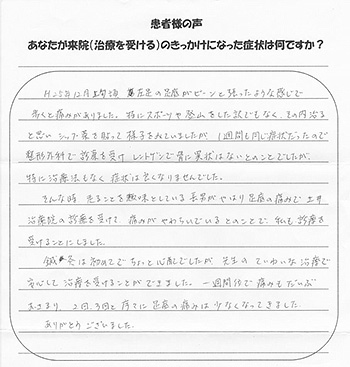 患者様の声
あなたが来院(治療を受ける)のきっかけになった症状は何ですか？
H25年12月上旬頃 左足の足底がピーンと張ったような感じで
歩くと痛みがありました。特にスポーツや登山をした訳でもなく、その内治る
と思い シップ薬を貼って様子をみていましたが 1週間も同じ症状だったので
整形外科で診察を受け レントゲンで骨に異状はないとのことでしたが、
特に治療法もなく 症状は良くなりませんでした。
そんな時 走ることを趣味としている長男がやはり足底の痛みで
治療院の診療を受けて 痛みがやわらいでいるとのことで、私も診療を
受けることにしました。
鍼灸は初めてで ちょっと心配でしたが 先生のていねいな治療で
安心して治療を受けることができました。一週間位で痛みもだいぶ
おさまり、2回、3回と序々に足底の痛みは少なくなってきました
ありがとうございました。